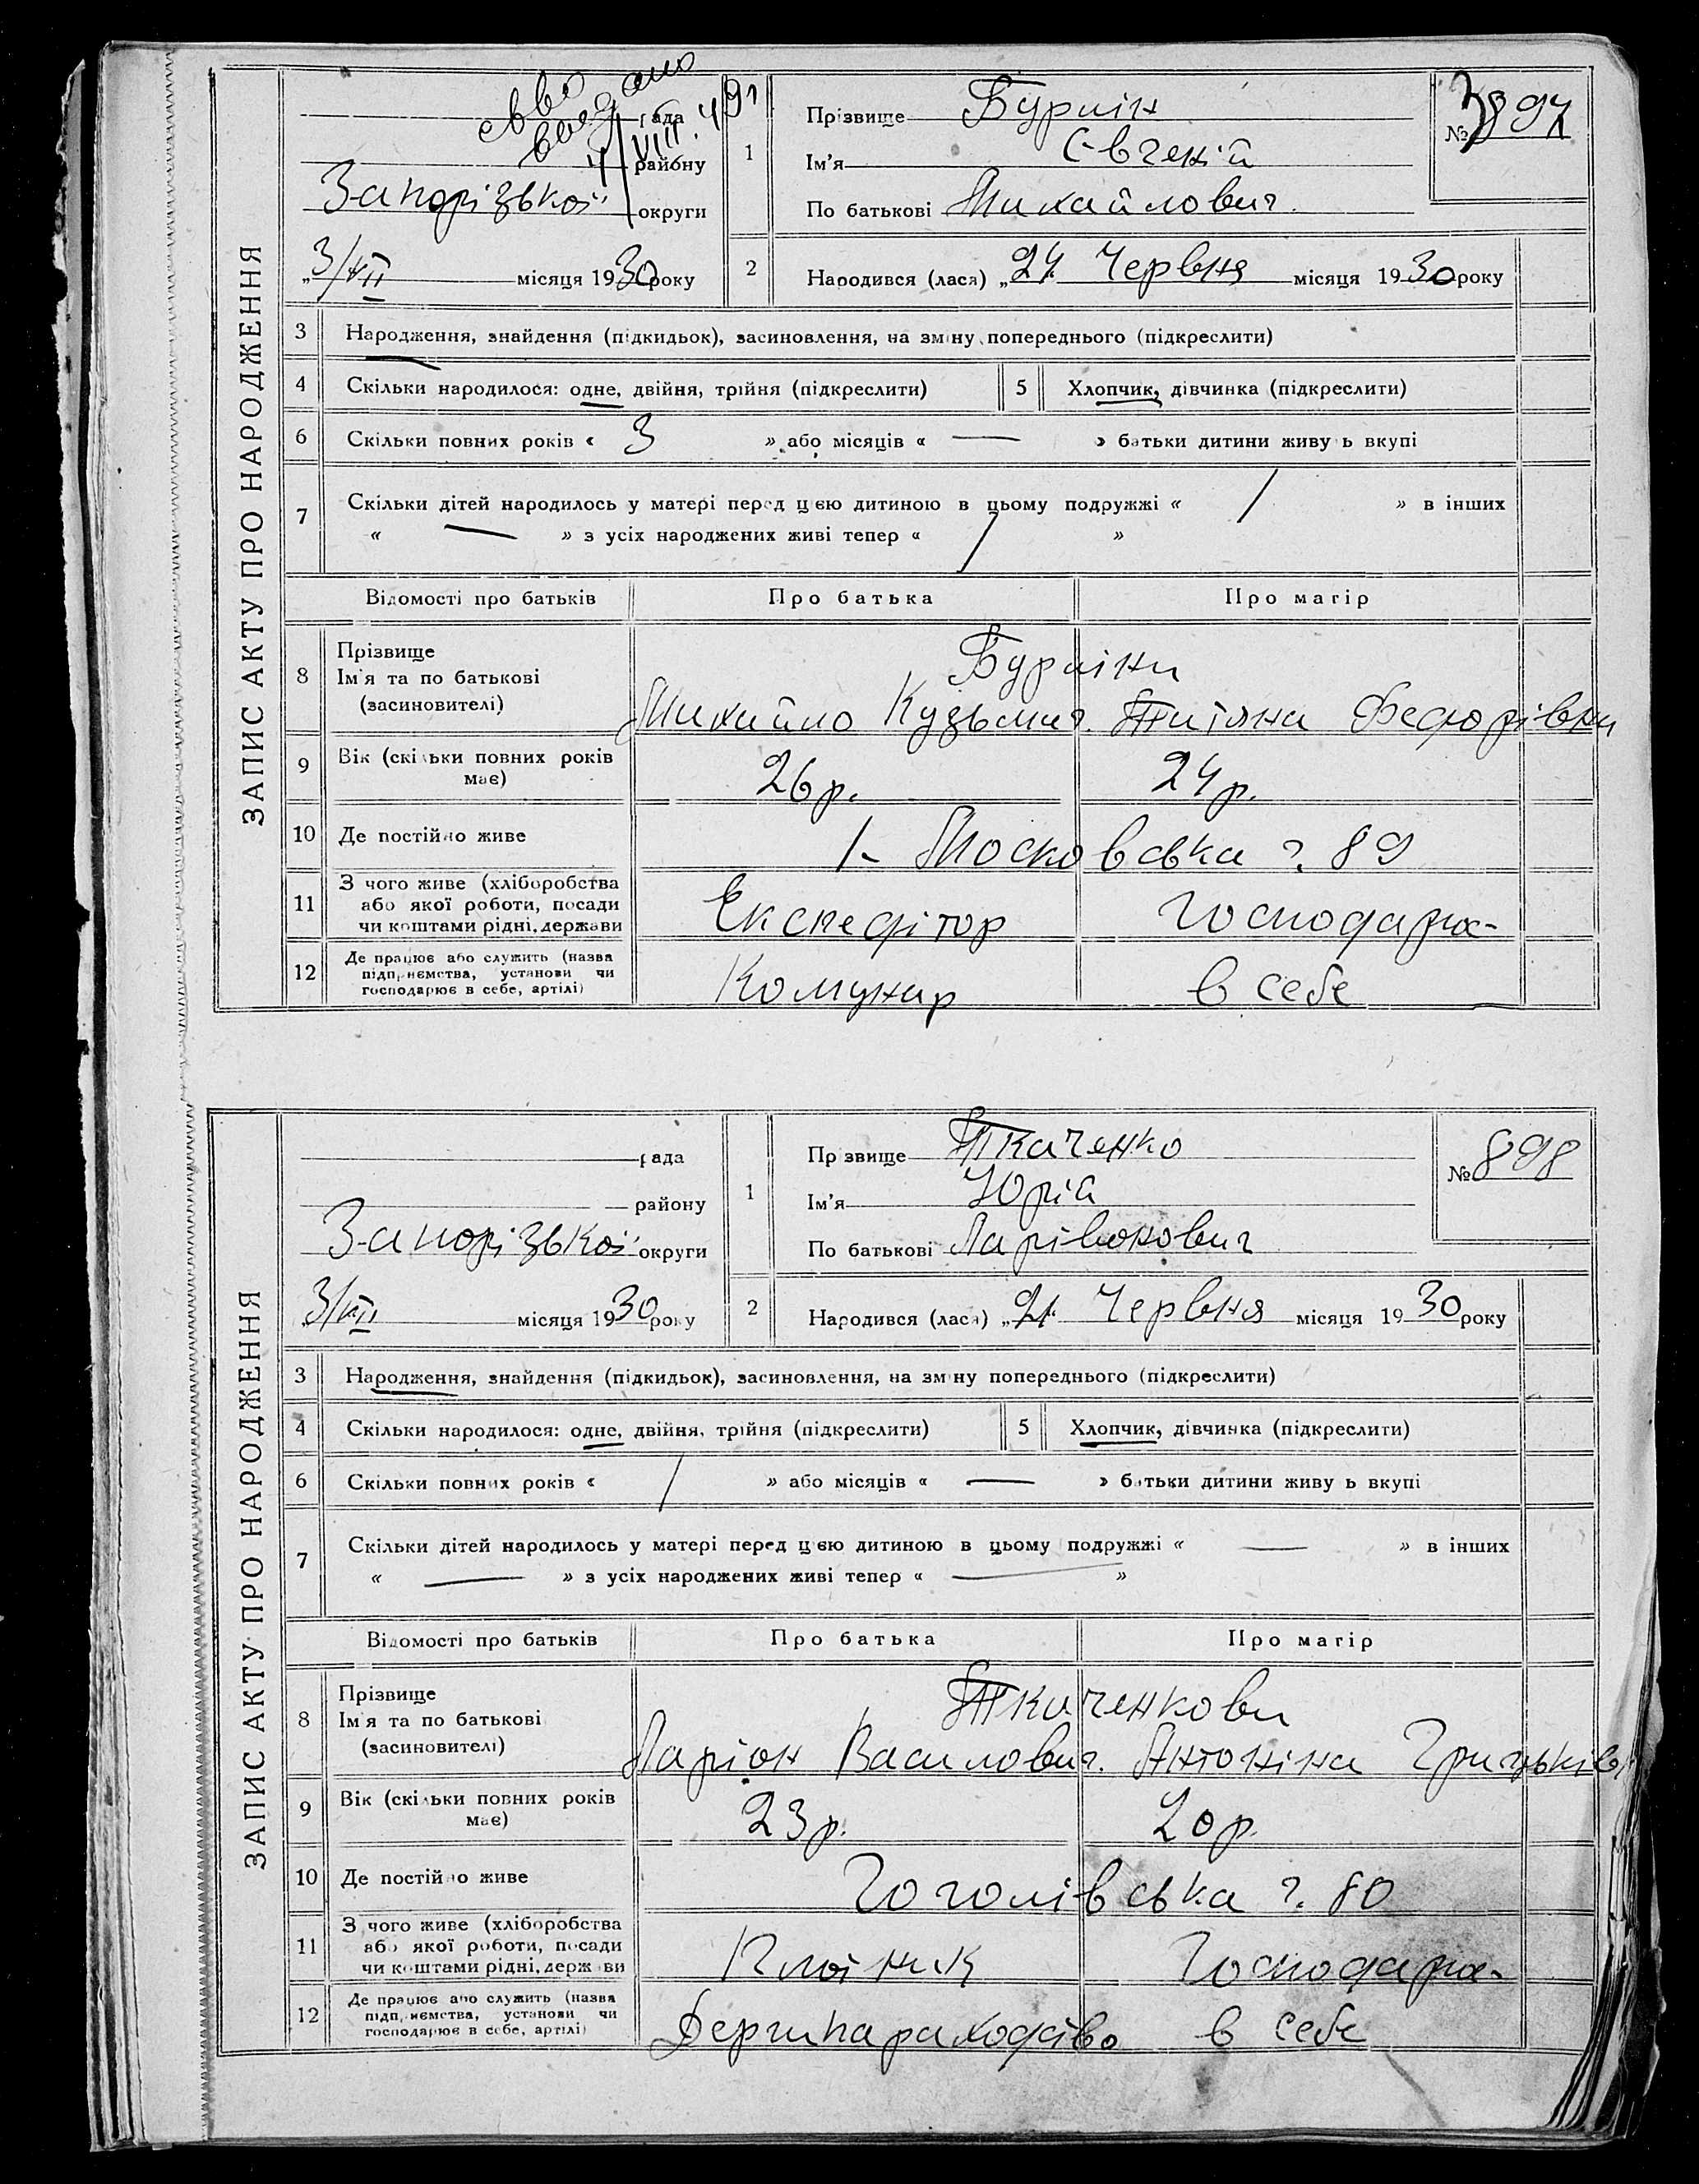 ЗАПИС АКТУ ПРО НАРОДЖЕННЯ
св во
видано
4/VIII. 491
рада
району
Запорізької округи
„3/VII місяця 1930 року
1 Прізвище Бурлін
Ім'я Євгеній
По батькові Михайлович.
№ 897
2 Народився (лася) „24 Червня місяця 1930 року
3 Народження, знайдення (підкидьок), засиновлення, на зміну попереднього (підкреслити)
4 Скільки народилося: одне, двійня, трійня (підкреслити) 5 Хлопчик, дівчинка (підкреслити)
6 Скільки повних років « 3 » або місяців « — » батьки дитини живуть вкупі
7 Скільки дітей народилось у матері перед цією дитиною в цьому подружжі « / » в інших
« — » з усіх народжених живі тепер « / »
Відомості про батьків Про батька Про матір
8 Прізвище
Ім'я та по батькові
(засиновителі)
Бурліни
Михайло Кузьмич. Титяна Федорівни
9 Вік (скільки повних років має) 26 р. 24 р.
10 Де постійно живе 1- Московська ч. 89
11 З чого живе (хліборобства або якої роботи, посади чи коштами рідні, держави Експедітор Господарює-
12 Де працює або служить (назва підприємства, установи чи господарює в себе, артілі) Комунар в себе
ЗАПИС АКТУ ПРО НАРОДЖЕННЯ
рада
району
Запорізької округи
„3/VII місяця 1930 року
1 Прізвище Ткаченко
Ім'я Юрій
По батькові Ларівонович
№ 898
2 Народився (лася) „21 Червня місяця 1930 року
3 Народження, знайдення (підкидьок), засиновлення, на зміну попереднього (підкреслити)
4 Скільки народилося: одне, двійня, трійня (підкреслити) 5 Хлопчик, дівчинка (підкреслити)
6 Скільки повних років « / » або місяців « — » батьки дитини живуть вкупі
7 Скільки дітей народилось у матері перед цією дитиною в цьому подружжі « — » в інших
« — » з усіх народжених живі тепер « — »
Відомості про батьків Про батька Про матір
8 Прізвище
Ім'я та по батькові
(засиновителі)
Ткаченкови
Ларіон Василович. Антоніна Грицьків
9 Вік (скільки повних років має) 23 р. 20 р.
10 Де постійно живе Гоголівська ч. 80
11 З чого живе (хліборобства або якої роботи, посади чи коштами рідні, держави Клоїник Господарює-
12 Де працює або служить (назва підприємства, установи чи господарює в себе, артілі) Держпараходство в себе